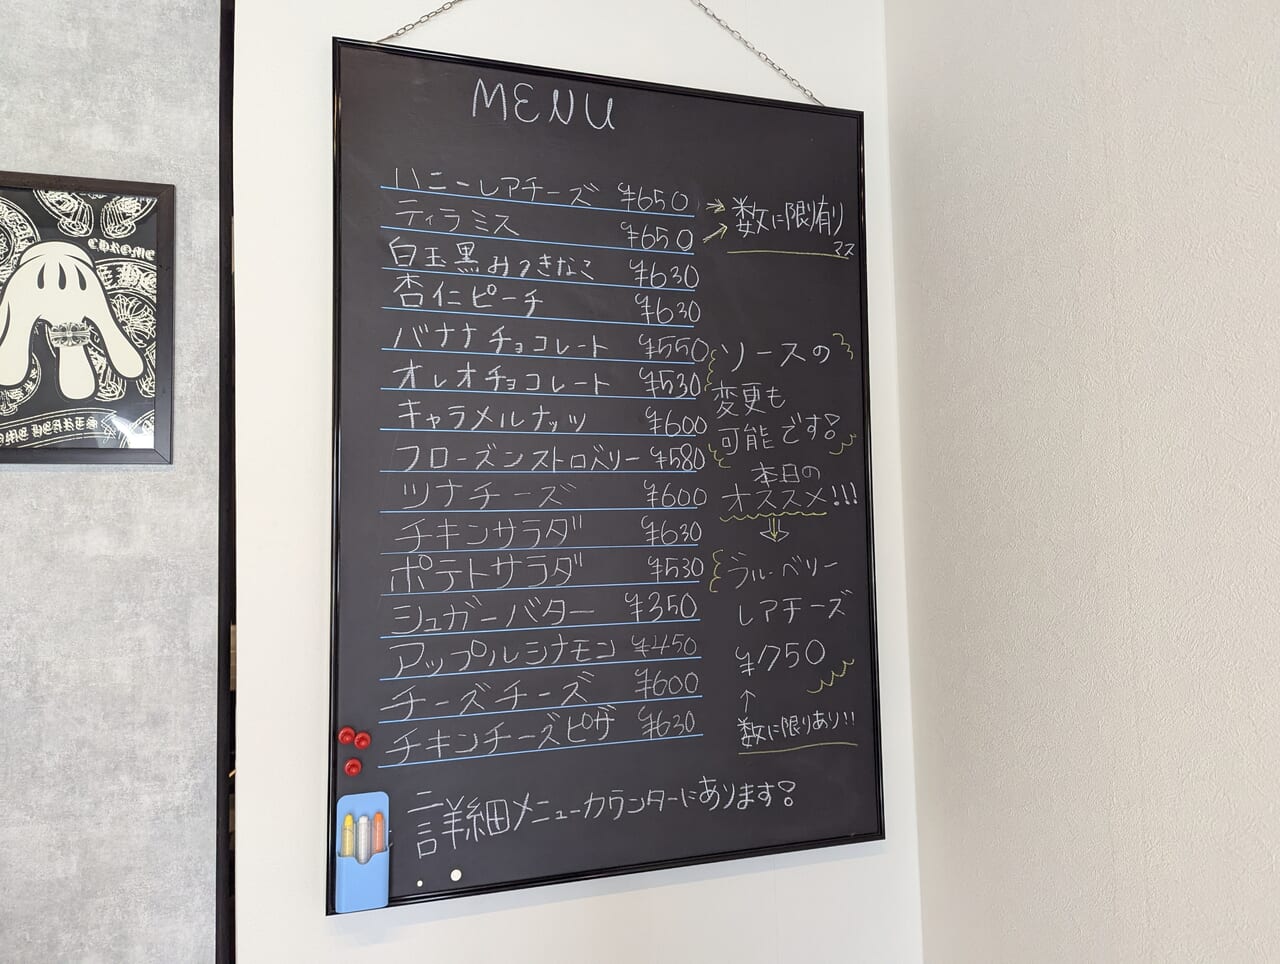 MENU
ハニーレアチーズ ¥650
ティラミス ¥650
白玉黒みつきなこ ¥630
杏仁ピーチ ¥630
バナナチョコレート ¥550
オレオチョコレート ¥530
キャラメルナッツ ¥600
フローズンストロベリー ¥580
ツナチーズ ¥600
チキンサラダ ¥630
ポテトサラダ ¥530
シュガーバター ¥350
アップルシナモン ¥450
チーズチーズ ¥600
チキンチーズピザ ¥630
詳細メニューカウンターにあります!
数に限り有り
マス
ソースの
変更も
可能です!
本日の
オススメ!!!
ブルーベリー
レアチーズ
¥750
数に限りあり!!
CHROME
OME HEARTS